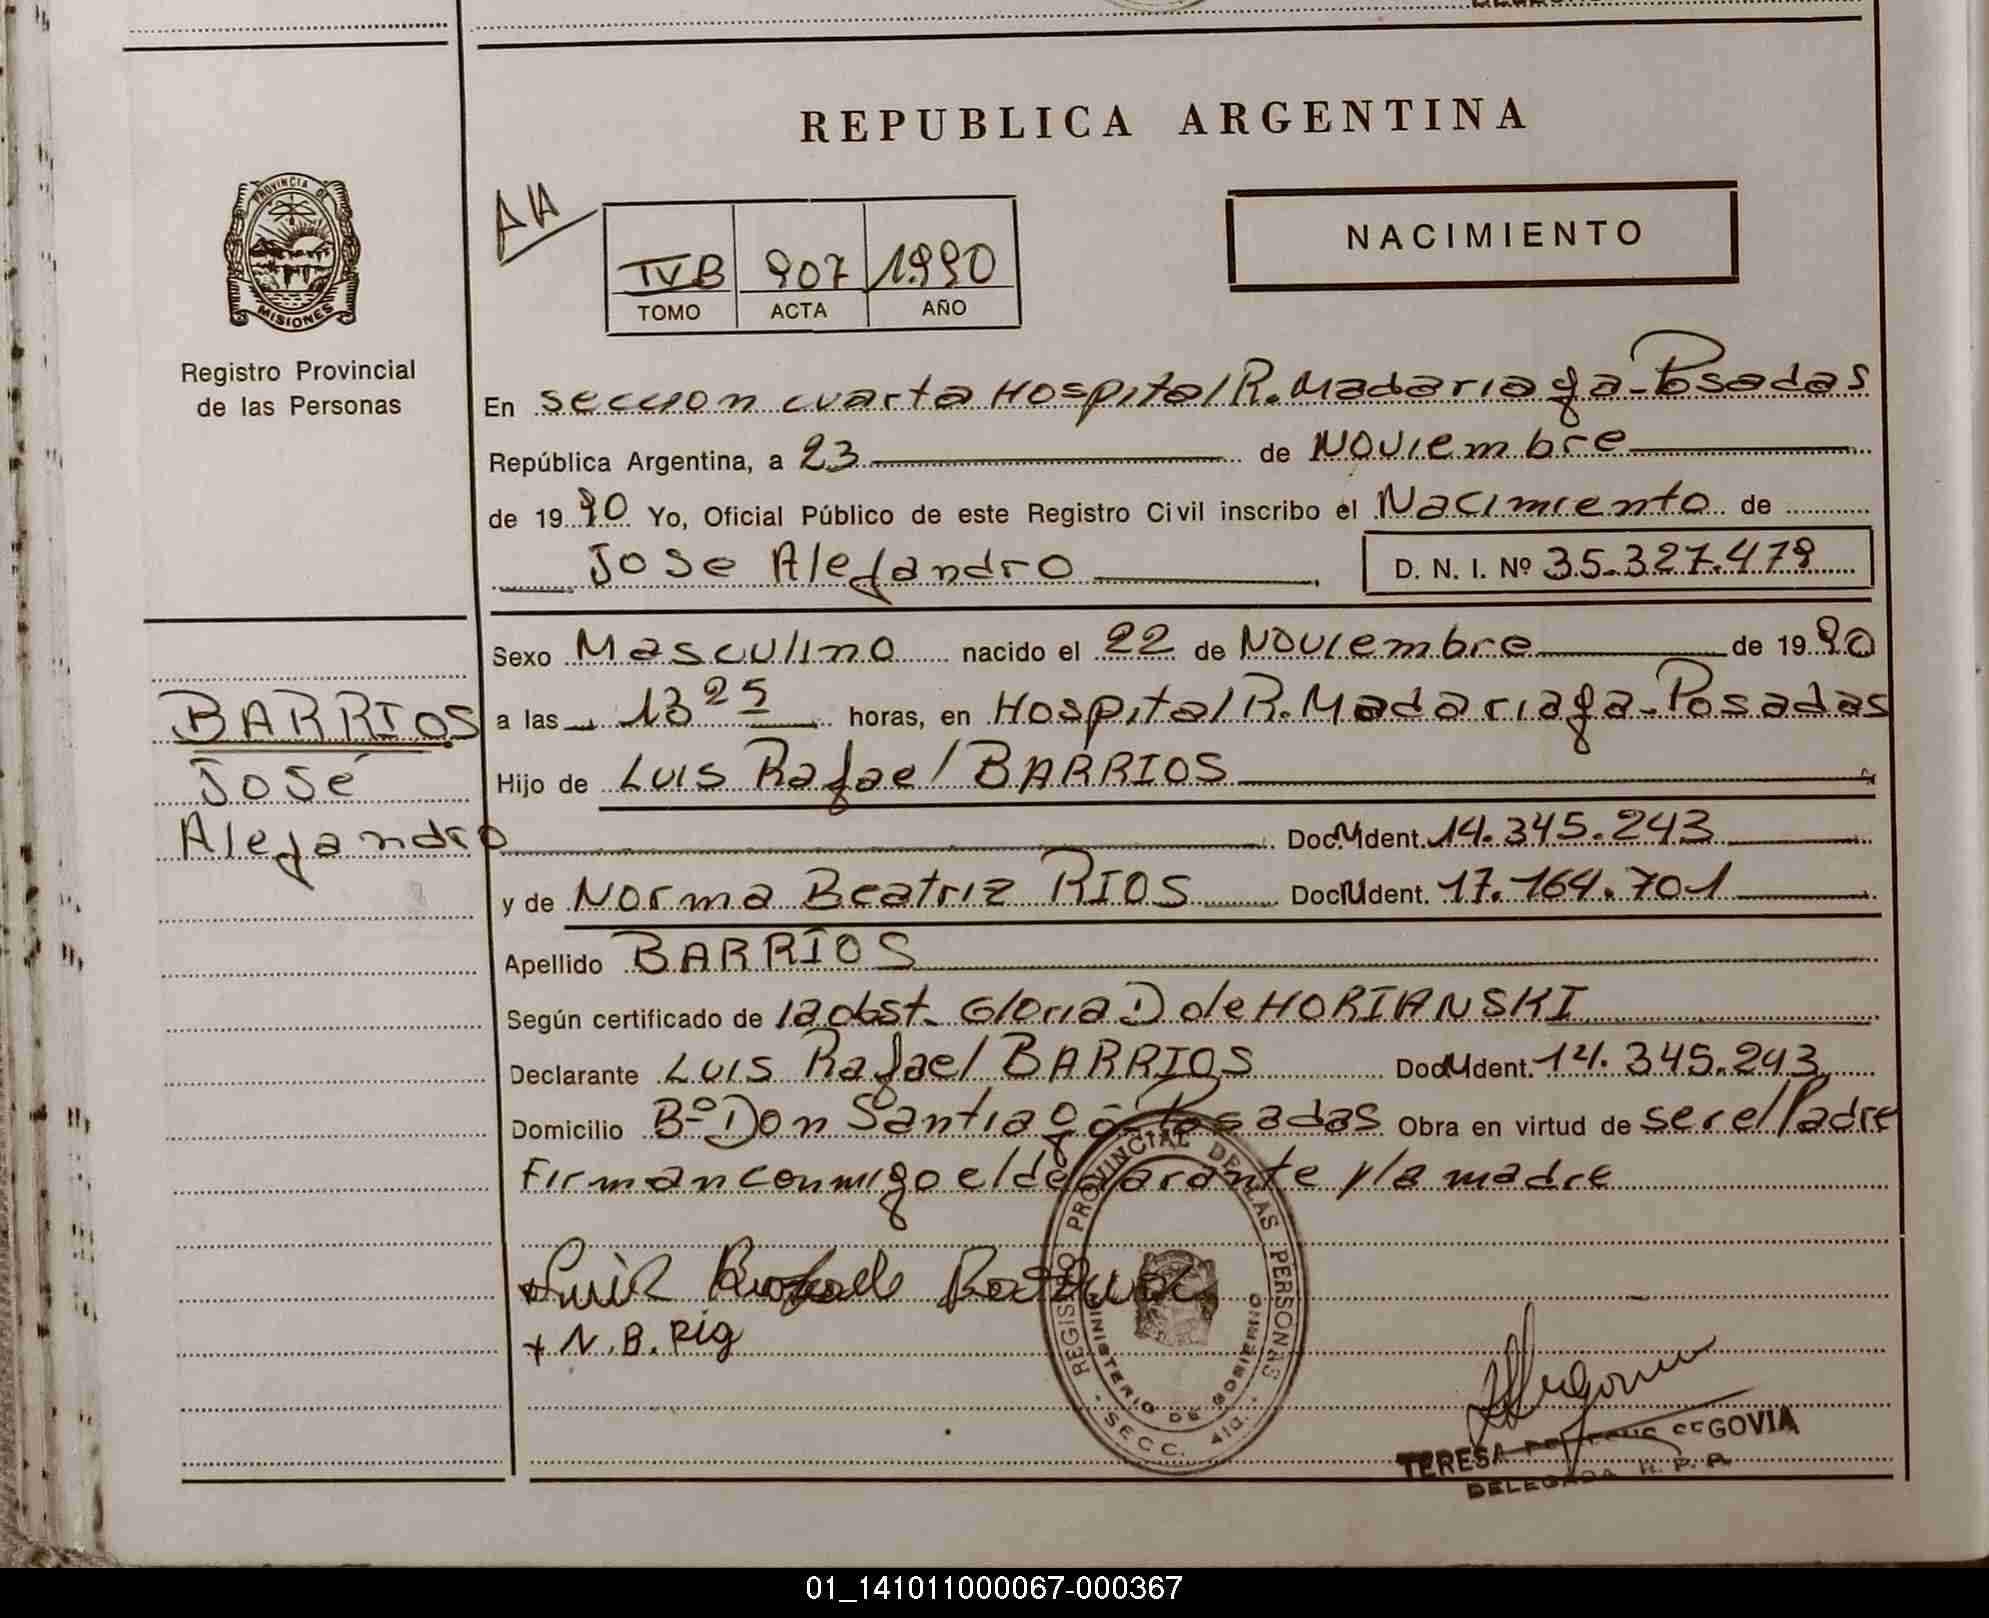 REPUBLICA ARGENTINA
NACIMIENTO
AA
TVB 907 1.990
TOMO ACTA AÑO
PROVINCIA DE MISIONES
Registro Provincial
de las Personas
En seccion cuarta Hospital R. Madariaga - Posadas
República Argentina, a 23 de Noviembre
de 1990 Yo, Oficial Público de este Registro Civil inscribo el Nacimiento de
Jose Alejandro D. N. I. Nº 35.327.479
Sexo Masculino nacido el 22 de Noviembre de 1990
a las 13 25 horas, en Hospital R. Madariaga - Posadas
Hijo de Luis Rafael BARRIOS
Doc. M Ident. 14.345.243
y de Norma Beatriz RIOS Doc. U Ident. 17.164.701
Apellido BARRIOS
Según certificado de la obst. Gloria D de HORIANSKI
Declarante Luis Rafael BARRIOS Doc. U Ident. 14.345.243
Domicilio Bº Don Santiago - Posadas Obra en virtud de ser el Padre
Firman conmigo el declarante y la madre
BARRIOS
José
Alejandro
+ N. B. Rig
REGISTRO PROVINCIAL DE LAS PERSONAS
MINISTERIO DE GOBIERNO
- SECC. 4ta. -
TERESA SEGOVIA
DELEGADA R. P. P.
01_141011000067-000367